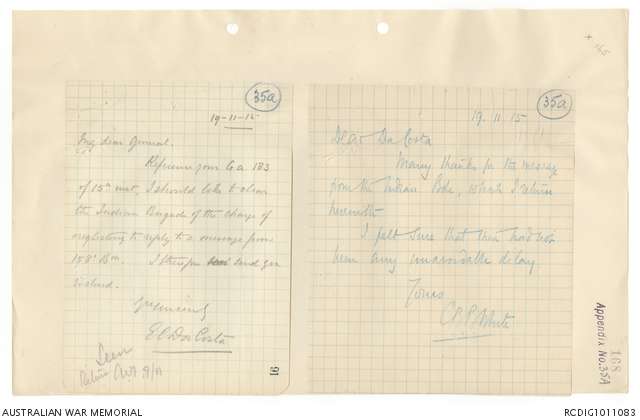 35a
19-11-15
My dear General.
Reference your Ga 183
of 15th inst, I should like to clear
the Indian Brigade of the charge of
neglecting to reply to a message from
I therefore send you
Yr sincerely
E C Da Costa
Seen
Return
91
35a
19.11.15
Dear Da Costa
Many thanks for the message
from the Indian Bde, which I return
herewith
I felt sure that there had not
been any unavoidable delay
Yours
C B B White
168
Appendix No. 35A
AUSTRALIAN WAR MEMORIAL
RCDIG1011083